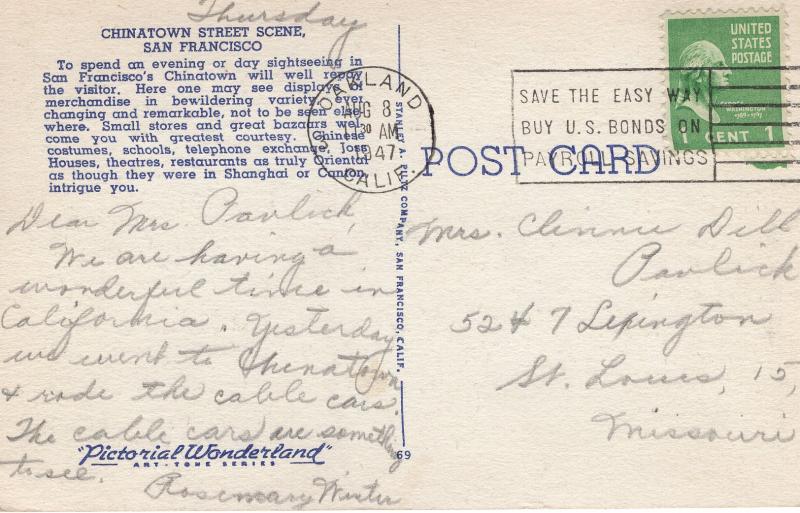 Thursday
CHINATOWN STREET SCENE,
SAN FRANCISCO
To spend an evening or day sightseeing in
San Francisco's Chinatown will well repay
the visitor. Here one may see displays of
merchandise in bewildering variety, ever
changing and remarkable, not to be seen else-
where. Small stores and great bazaars wel-
come you with greatest courtesy. Chinese
costumes, schools, telephone exchange, Joss
Houses, theatres, restaurants as truly Oriental
as though they were in Shanghai or Canton
intrigue you.
Dear Mrs. Pavlick,
We are having a
wonderful time in
California. Yesterday
we went to Chinatown
& rode the cable cars.
The cable cars are something
to see.
Rosemary Winter
"Pictorial Wonderland"
ART-TONE SERIES
STANLEY A. PILTZ COMPANY, SAN FRANCISCO, CALIF.
69
OAKLAND
AUG 8
11 30 AM
1947
CALIF.
SAVE THE EASY WAY
BUY U.S. BONDS ON
PAYROLL SAVINGS
UNITED
STATES
POSTAGE
WASHINGTON
1789-1797
1 CENT 1
POST CARD
Mrs. Clinnie Dill
Pavlick
5247 Lexington
St. Louis, 15,
Missouri